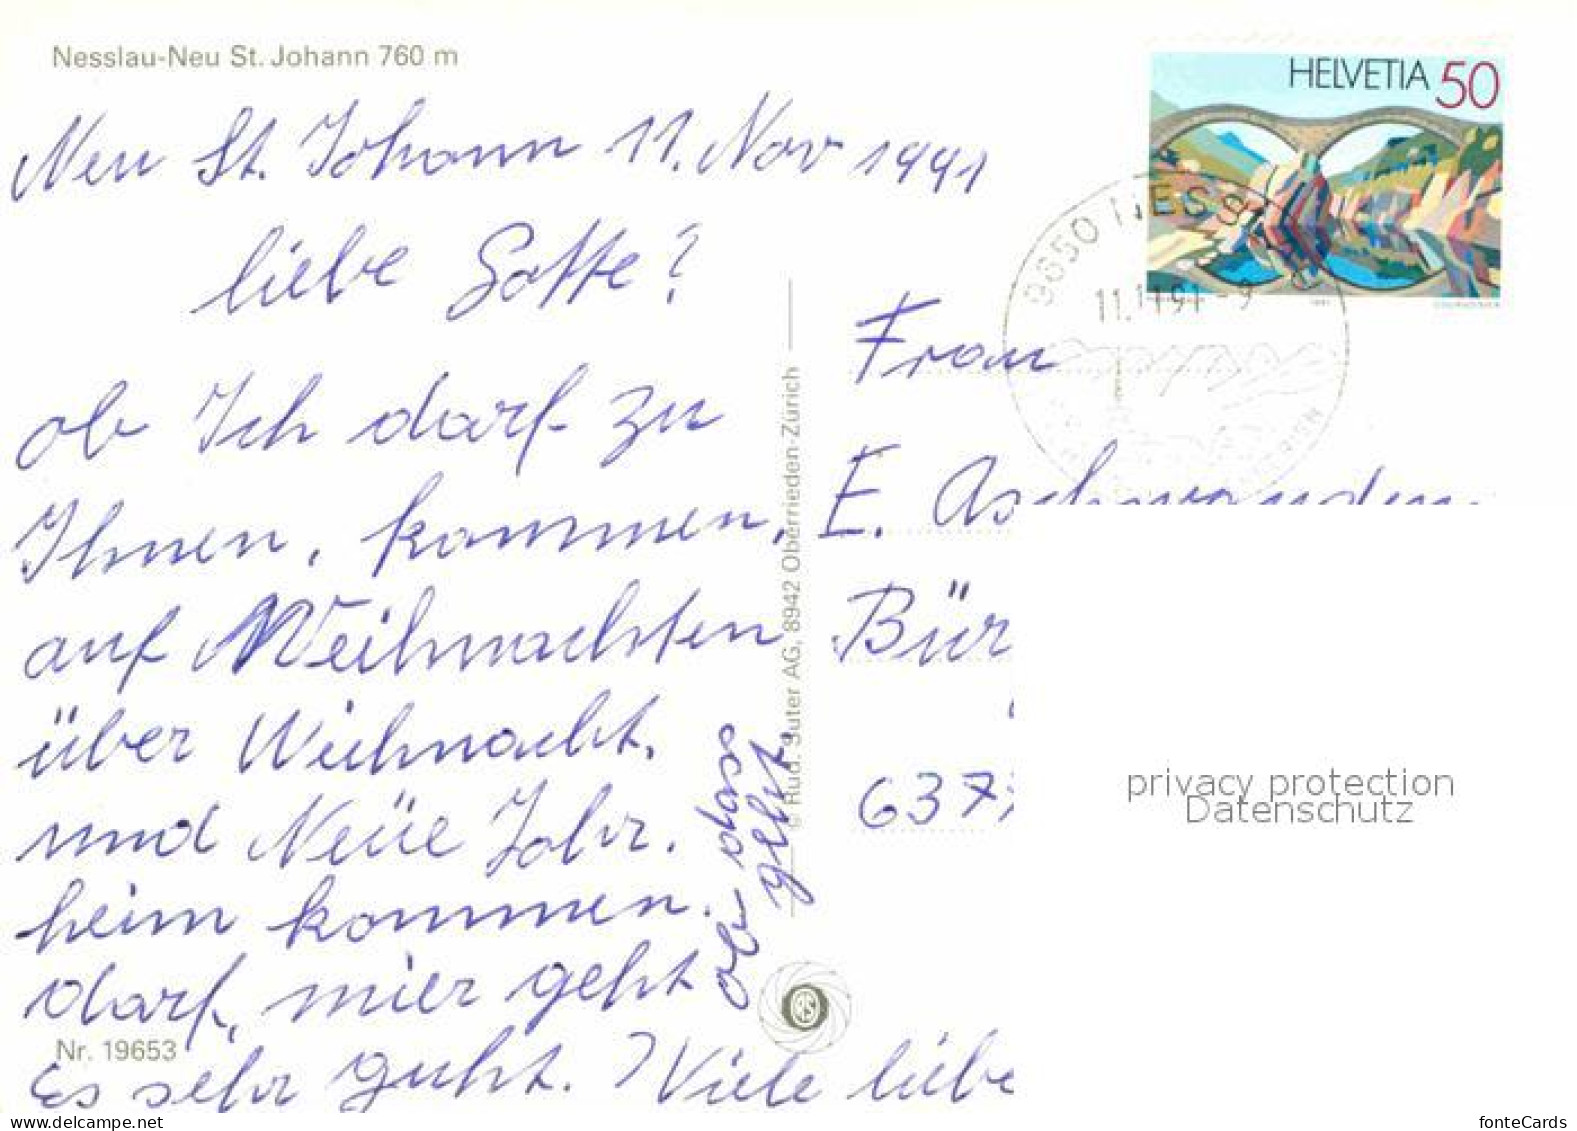 Nesslau-Neu St. Johann 760 m
HELVETIA 50
Neu St. Johann 11. Nov 1991
liebe Gotte?
ob Ich darf zu
Ihnen, kommen,
auf Weihnachten
über Weihnacht,
und Neüe Johr.
heim kommen.
darf, mier geht
Es sehr guht. Viele liebe
ob dass
geht.
© Rud. Suter AG, 8942 Oberrieden-Zürich
9650 NESSLAU
11.11.91-9
FERIEN
Frau
E. Aschwanden
Bür
6377
Nr. 19653
RS
privacy protection
Datenschutz
fonteCards